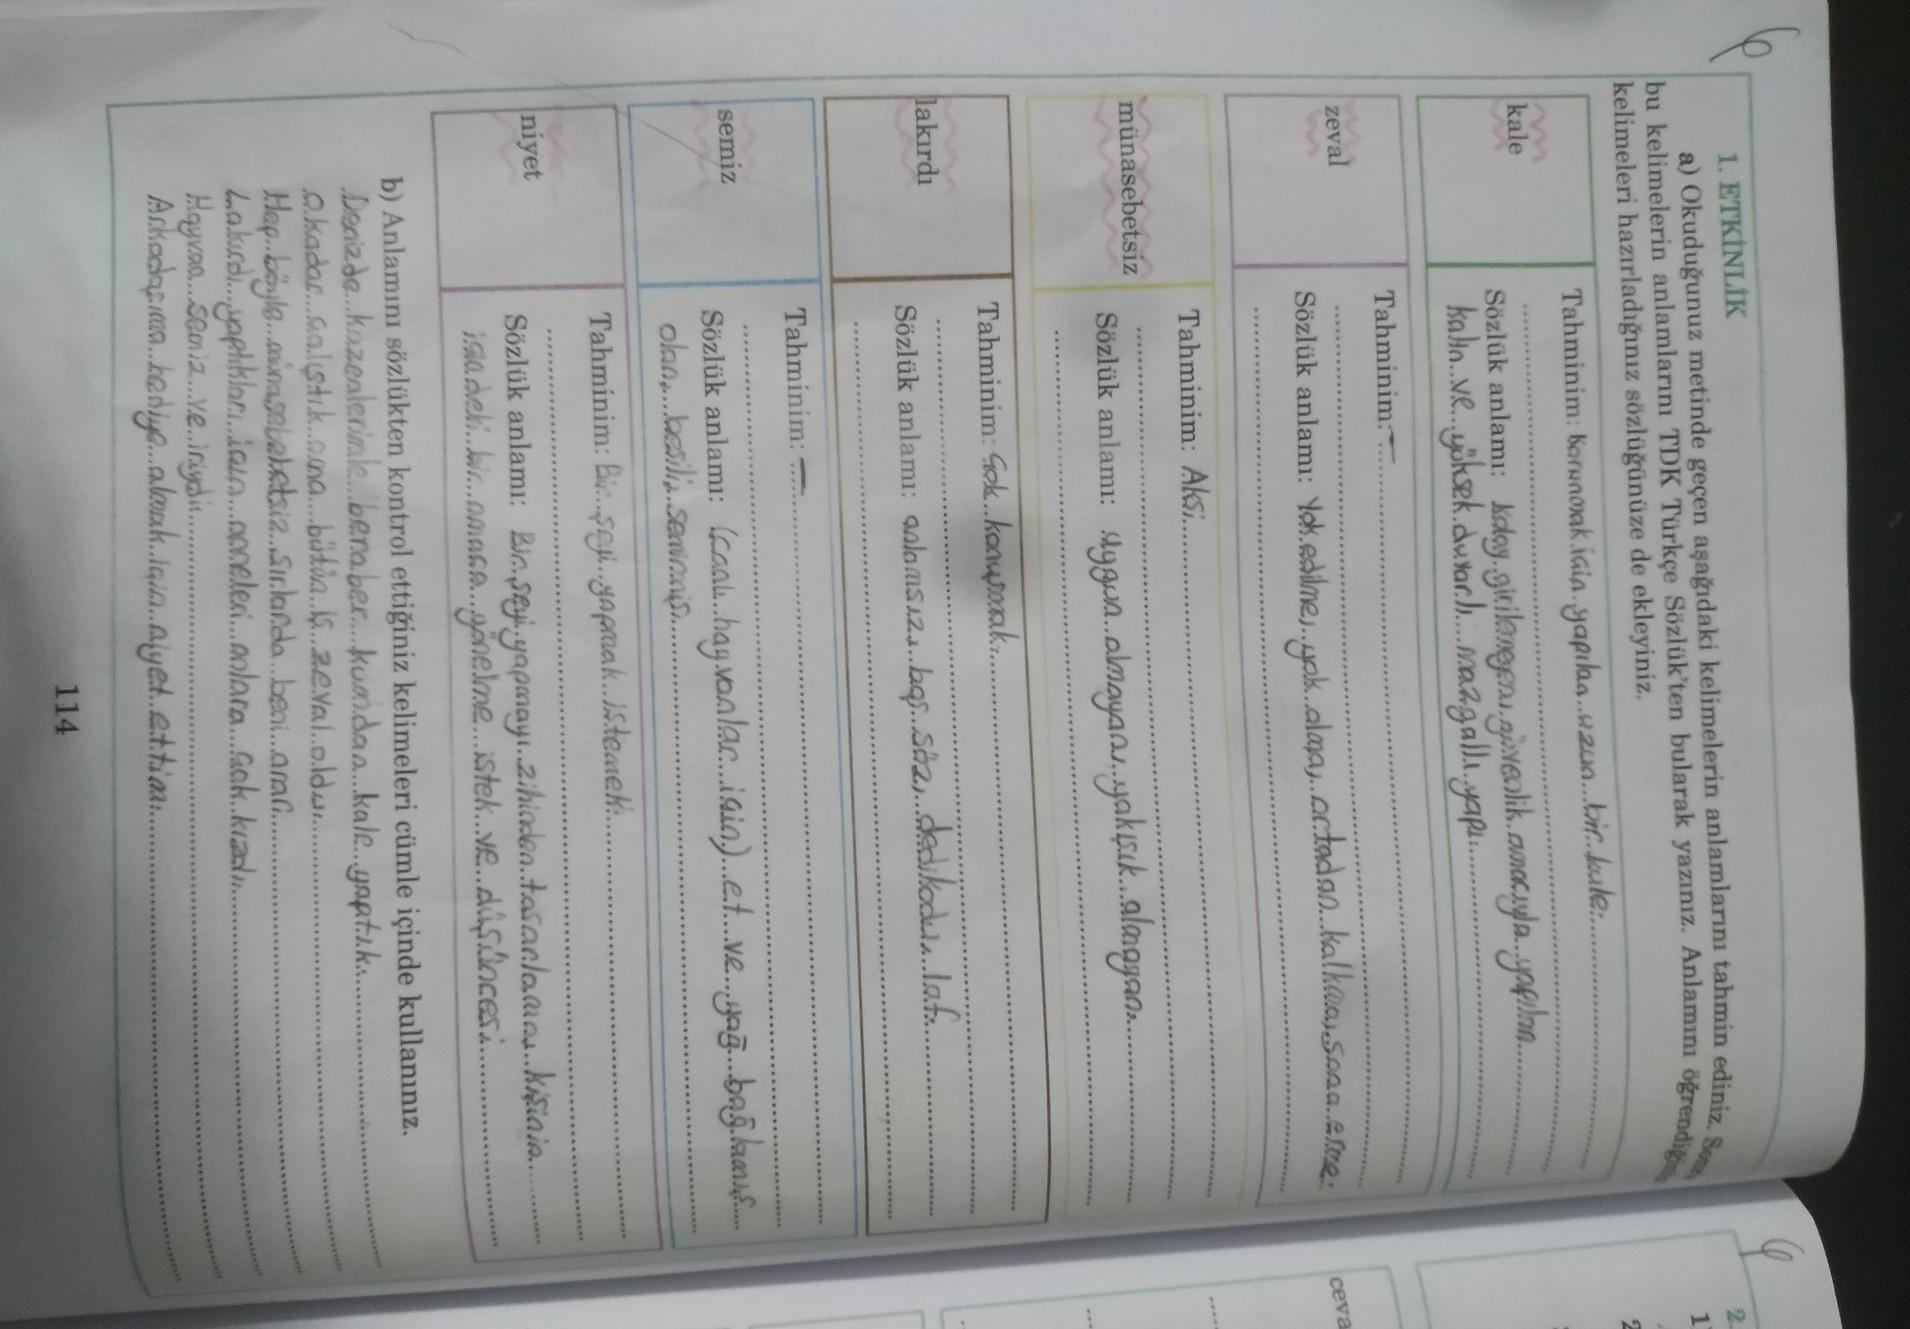 6
1. ETKİNLİK
a) Okuduğunuz metinde geçen aşağıdaki kelimelerin anlamlarını tahmin ediniz.
bu kelimelerin anlamlarını TDK Türkçe Sözlük'ten bularak yazınız. Anlamını
kelimeleri hazırladığınız sözlüğünüze de ekleyiniz.
kale
Tahminim: Korunmak için yapılan uzun bir kule.
Sözlük anlamı: kolay girilemeyen, güvenlik amacıyla yapılan
kalın ve yüksek duvarlı mazgallı yapı.
zeval
Tahminim: —
Sözlük anlamı: Yok edilme, yok olma, ortadan kalkma, sona erme.
münasebetsiz
Tahminim: Aksi
Sözlük anlamı: Uygun olmayan, yakışık almayan.
lakırdı
Tahminim: Çok konuşmak.
Sözlük anlamı: anlamsız, boş söz, dedikodu, laf.
semiz
Tahminim: —
Sözlük anlamı: (canlı hayvanlar için) et ve yağ bağlamış
olan, besili, semirmiş.
niyet
Tahminim: Bir şeyi yapmak istemek.
Sözlük anlamı: Bir şeyi yapmayı zihinden tasarlama, kişinin
içindeki bir amaca yönelme istek ve düşüncesi.
b) Anlamını sözlükten kontrol ettiğiniz kelimeleri cümle içinde kullanınız.
Denizde kuzenlerimle beraber kumdan kale yaptık.
O kadar çalıştık ama bütün iş zeval oldu.
Hep böyle münasebetsiz sırlarda beni arar.
Lakırdı yaptıkları için anneleri onlara çok kızdı.
Hayvan semiz ve iriydi.
Arkadaşıma hediye almak için niyet ettim.
114
6
2.
1
2
ceva